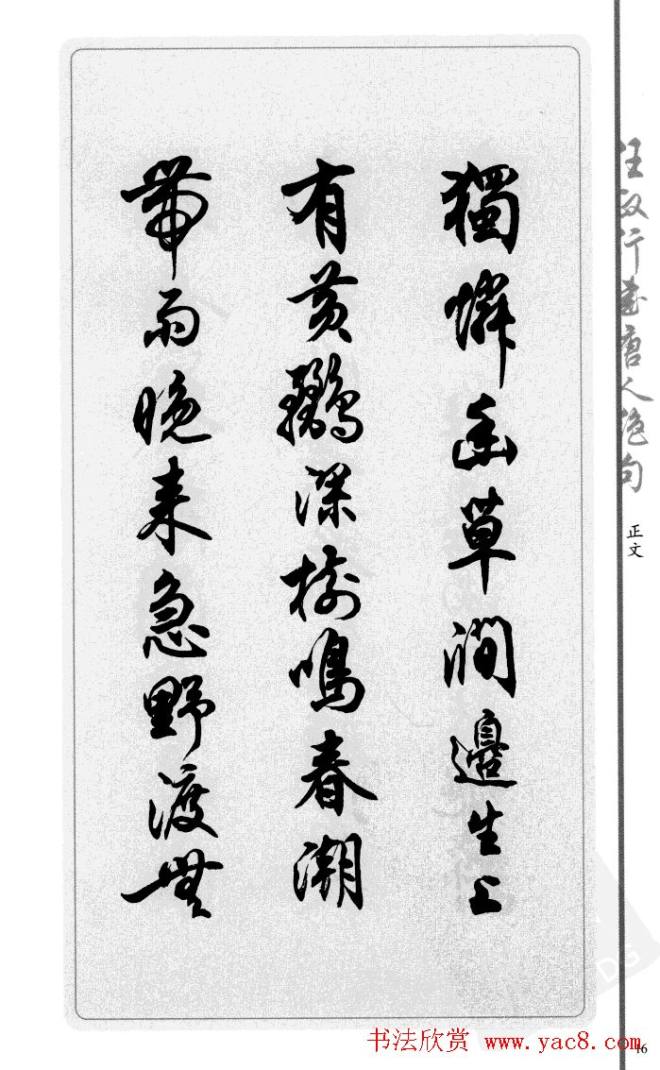 獨憐幽草澗邊生上
有黃鸝深樹鳴春潮
帶雨晚來急野渡無
行書唐人絕句
正文
书法欣赏 www.yac8.com
46